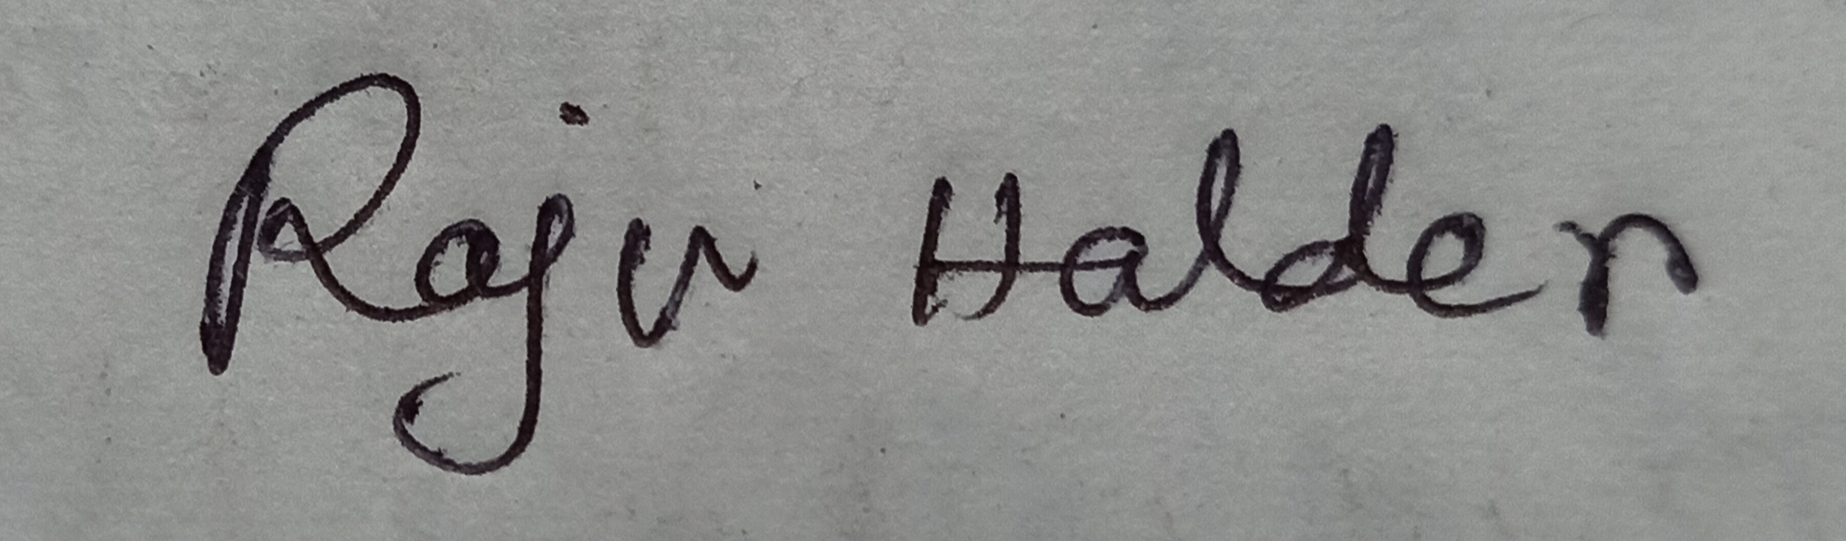 Raju Halder